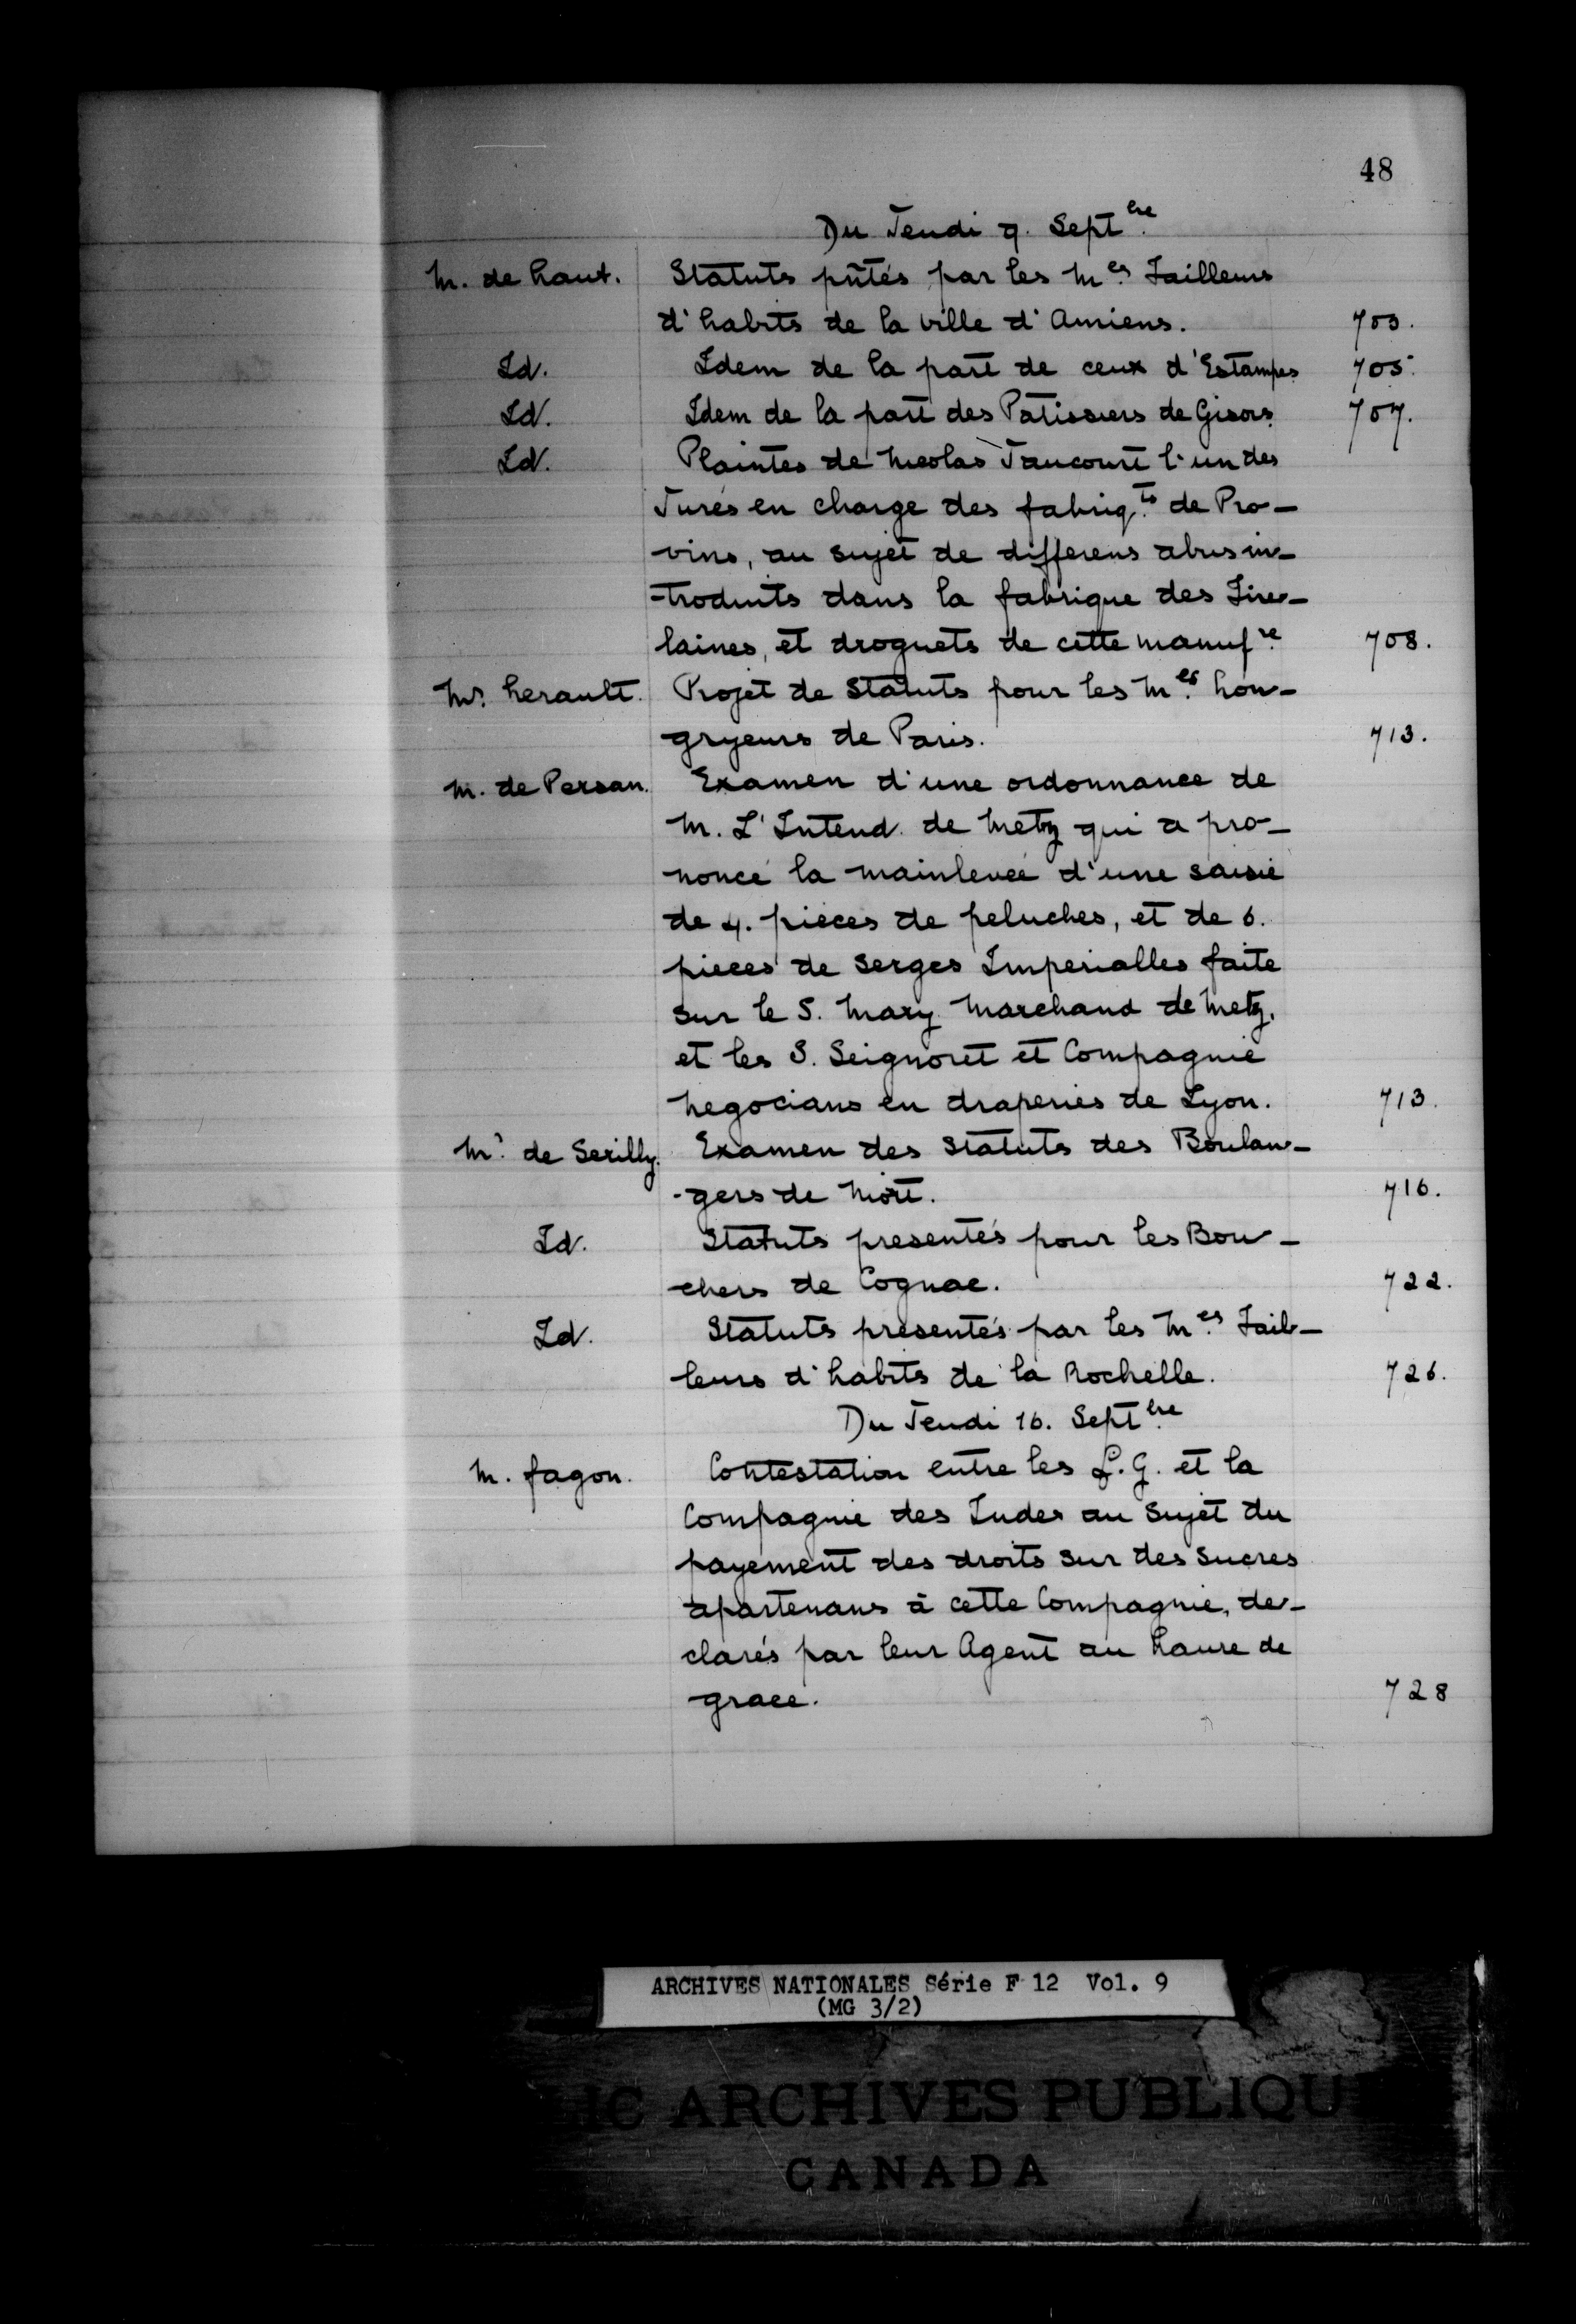 48
Du Jeudi 9. Sept.bre
M. de haut. Statuts pñtés par les M.es Tailleurs
d'habits de la ville d'Amiens. 703.
Id. Idem de la part de ceux d'Estampes 705.
Id. Idem de la part des Patissiers de Gisors 707.
Id. Plaintes de Nicolas Jancourt l'un des
Jurés en charge des fabriq.ts de Pro-
vins, au sujet de differens abus in-
-troduits dans la fabrique des Tire-
laines, et droguets de cette manuf.re 708.
Mr. herault. Projet de Statuts pour les M.es hon-
gryeurs de Paris. 713.
M. de Persan. Examen d'une ordonnance de
M. L'Intend. de Metz qui a pro-
noncé la mainlevée d'une saisie
de 4. pieces de peluches, et de 6.
pieces de Serges Imperialles faite
sur le S. Mary Marchand de Metz,
et les S. Seignoret et Compagnie
Negocians en draperies de Lyon. 713.
Mr. de Serilly. Examen des Statuts des Boulan-
-gers de Niort. 716.
Id. Statuts presentés pour les Bou-
chers de Cognac. 722.
Id. Statuts presentés par les M.es Tail-
leurs d'habits de la Rochelle. 726.
Du Jeudi 16. Sept.bre
M. fagon. Contestation entre les f. G. et la
Compagnie des Indes au sujet du
payement des droits sur des sucres
apartenans à cette Compagnie, de-
clarés par leur Agent au havre de
grace. 728
ARCHIVES NATIONALES Série F 12 Vol. 9
(MG 3/2)
LIC ARCHIVES PUBLIQU
CANADA